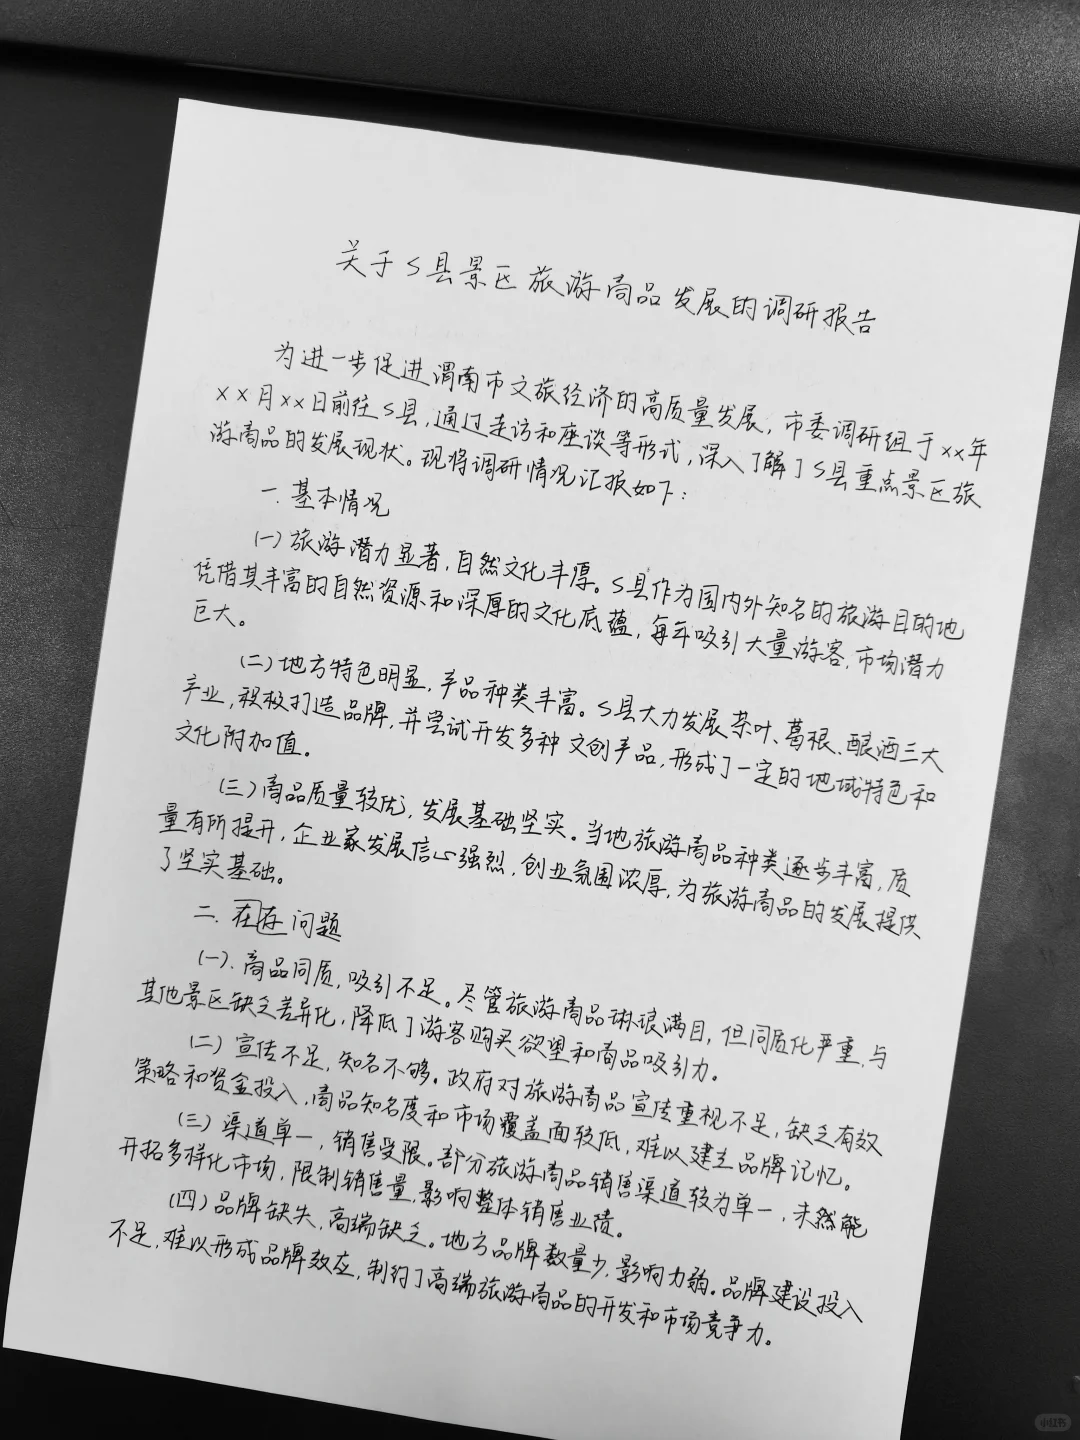 关于S县景区旅游商品发展的调研报告
为进一步促进渭南市文旅经济的高质量发展，市委调研组于xx年
xx月xx日前往S县，通过走访和座谈等形式，深入了解了S县重点景区旅
游商品的发展现状。现将调研情况汇报如下：
一、基本情况
(一)旅游潜力显著，自然文化丰厚。S县作为国内外知名的旅游目的地
凭借其丰富的自然资源和深厚的文化底蕴，每年吸引大量游客，市场潜力
巨大。
(二)地方特色明显，产品种类丰富。S县大力发展茶叶、葛根、酿酒三大
产业，积极打造品牌，并尝试开发多种文创产品，形成了一定的地域特色和
文化附加值。
(三)商品质量较优，发展基础坚实。当地旅游商品种类逐步丰富，质
量有所提升，企业家发展信心强烈，创业氛围浓厚，为旅游商品的发展提供
了坚实基础。
二、在存问题
(一)．商品同质，吸引不足。尽管旅游商品琳琅满目，但同质化严重，与
其他景区缺乏差异化，降低了游客购买欲望和商品吸引力。
(二)宣传不足，知名不够。政府对旅游商品宣传重视不足，缺乏有效
策略和资金投入，商品知名度和市场覆盖面较低，难以建立品牌记忆。
(三)渠道单一，销售受限。部分旅游商品销售渠道较为单一，未然能
开拓多样化市场，限制销售量，影响整体销售业绩。
(四)品牌缺失，高端缺乏。地方品牌数量少，影响力弱。品牌建设投入
不足，难以形成品牌效应，制约了高端旅游商品的开发和市场竞争力。
小红书